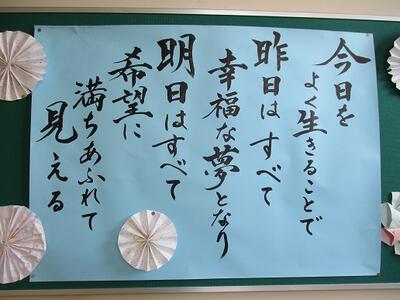 今日を
よく生きることで
昨日は すべて
幸福な夢となり
明日はすべて
希望に
満ちあふれて
見える